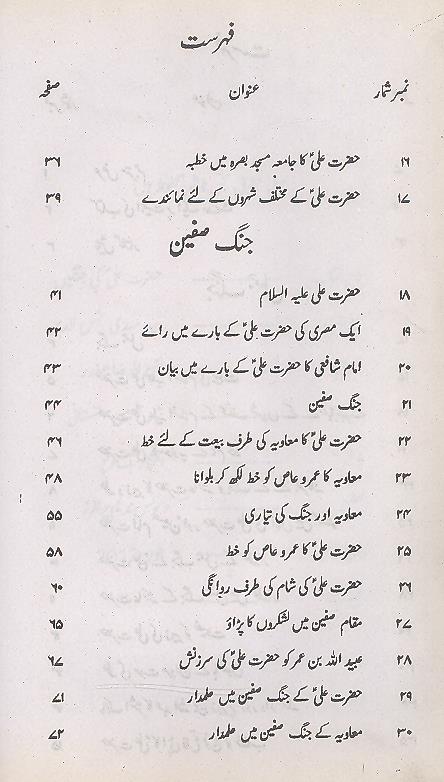 فہرست
نمبر شمار عنوان صفحہ
۱۶ حضرت علیؑ کا جامعہ مسجد بصرہ میں خطبہ ۳۶
۱۷ حضرت علیؑ کے مختلف شہروں کے لئے نمائندے ۳۹
جنگ صفین
۱۸ حضرت علی علیہ السلام ۴۱
۱۹ ایک مصری کی حضرت علیؑ کے بارے میں رائے ۴۲
۲۰ امام شافعی کا حضرت علیؑ کے بارے میں بیان ۴۳
۲۱ جنگ صفین ۴۴
۲۲ حضرت علیؑ کا معاویہ کی طرف بیعت کے لئے خط ۴۶
۲۳ معاویہ کا عمرو عاص کو خط لکھ کر بلوانا ۴۸
۲۴ معاویہ اور جنگ کی تیاری ۵۵
۲۵ حضرت علیؑ کا عمرو عاص کو خط ۵۸
۲۶ حضرت علیؑ کی شام کی طرف روانگی ۶۰
۲۷ مقام صفین میں لشکروں کا پڑاؤ ۶۵
۲۸ عبید اللہ بن عمر کو حضرت علیؑ کی سرزنش ۶۷
۲۹ حضرت علیؑ کے جنگ صفین میں علمدار ۷۱
۳۰ معاویہ کے جنگ صفین میں علمدار ۷۲